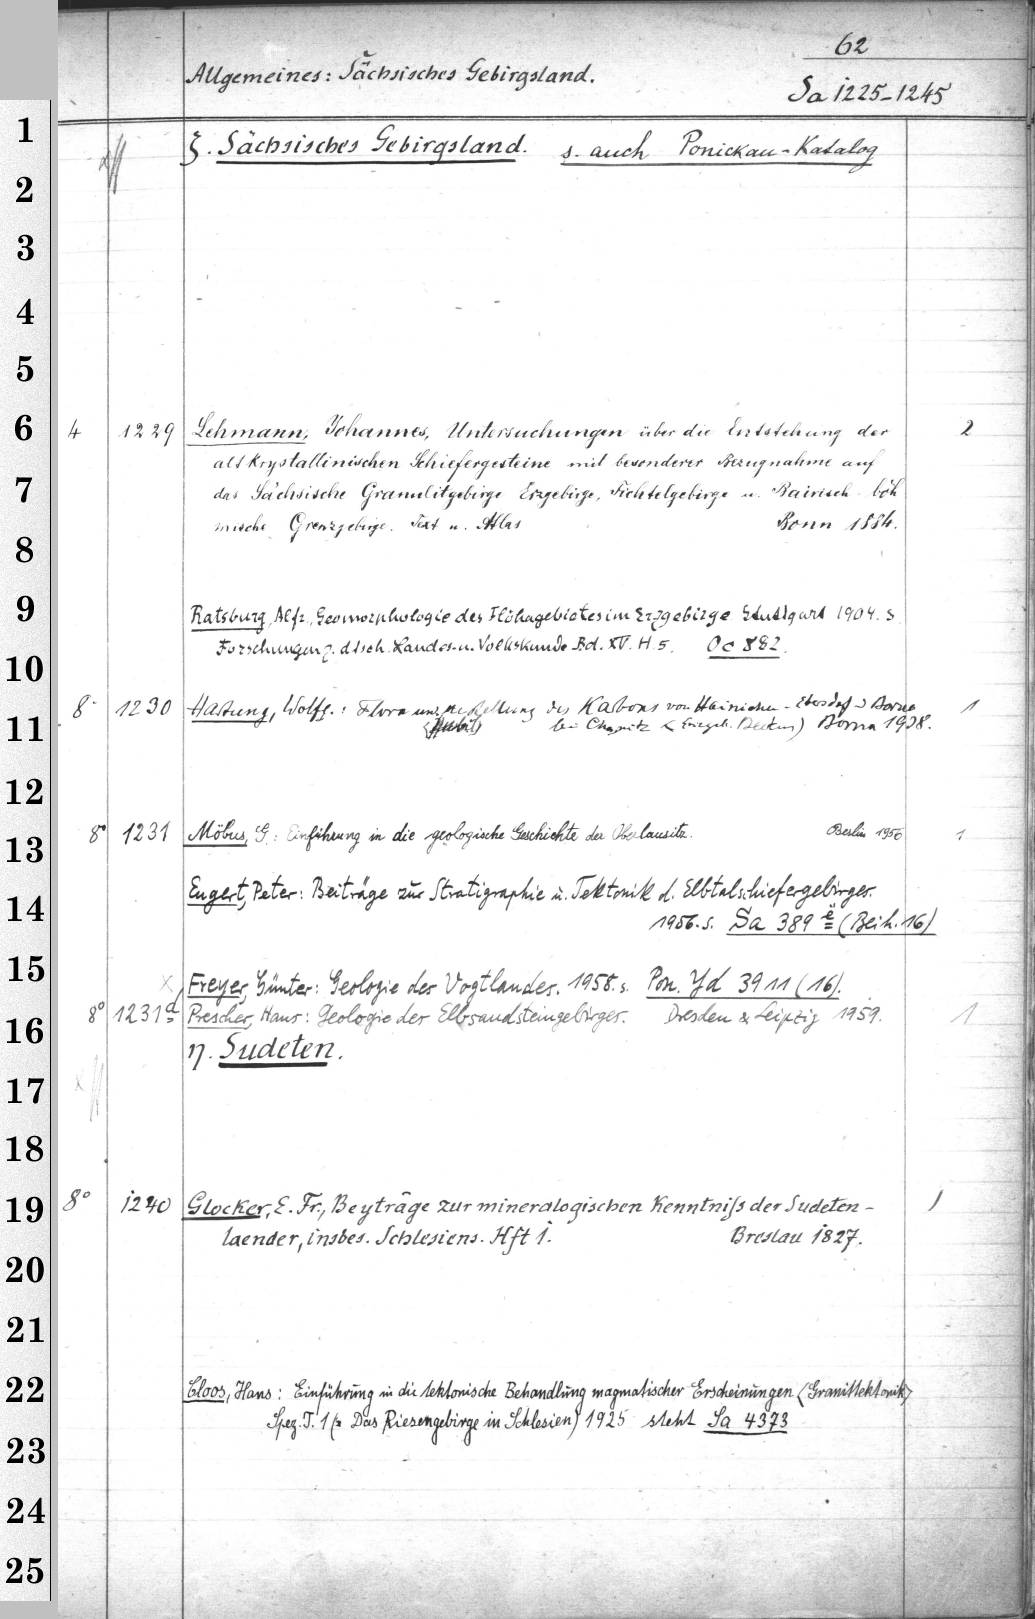 62
Allgemeines: Sächsisches Gebirgsland.
Sa 1225-1245
1
ξ. Sächsisches Gebirgsland. s. auch Ponickau-Katalog
2
3
4
5
6
4 1229 Lehmann, Johannes, Untersuchungen über die Entstehung der 2
altkrystallinischen Schiefergesteine mit besonderer Bezugnahme auf
7
das Sächsische Granulitgebirge Erzgebirge, Fichtelgebirge u. Bairisch-böh
mische Grenzgebirge. Text u. Atlas Bonn 1884.
8
9
Ratsburg, Alfr., Geomorphologie des Flöhagebietes im Erzgebirge Stuttgart 1904. s.
Forschungen z. dtsch. Landes-u. Volkskunde Bd. XV. H. 5. Oc 882.
10
8° 1230 Hartung, Wolfg.: Flora und des Karbons von Hainichen-Ebersdorf u Borna 1
11
bei Chemnitz (Erzgeb. Becken) Borna 1938.
12
8° 1231 Möbus, G.: Einführung in die geologische Geschichte der Oberlausitz. Berlin 1956 1
13
Engert, Peter: Beiträge zur Stratigraphie u. Tektonik d. Elbtalschiefergebirges.
14
1956. s. Sa 389 ë (Beih. 16)
15
x Freyer, Günter: Geologie des Vogtlandes. 1958. s. Pon. Yd 3911 (16).
8° 1231 a Prescher, Hans: Geologie des Elbsandsteingebirges. Dresden & Leipzig 1959. 1
16
η. Sudeten.
17
18
19
8° 1240 Glocker, E. Fr., Beyträge zur mineralogischen Kenntniss der Sudeten- 1
laender, insbes. Schlesiens. Hft 1. Breslau 1827.
20
21
22
Cloos, Hans: Einführung in die tektonische Behandlung magmatischer Erscheinungen (Granittektonik)
Spez. T. 1 (= Das Riesengebirge in Schlesien) 1925 steht Sa 4373
23
24
25